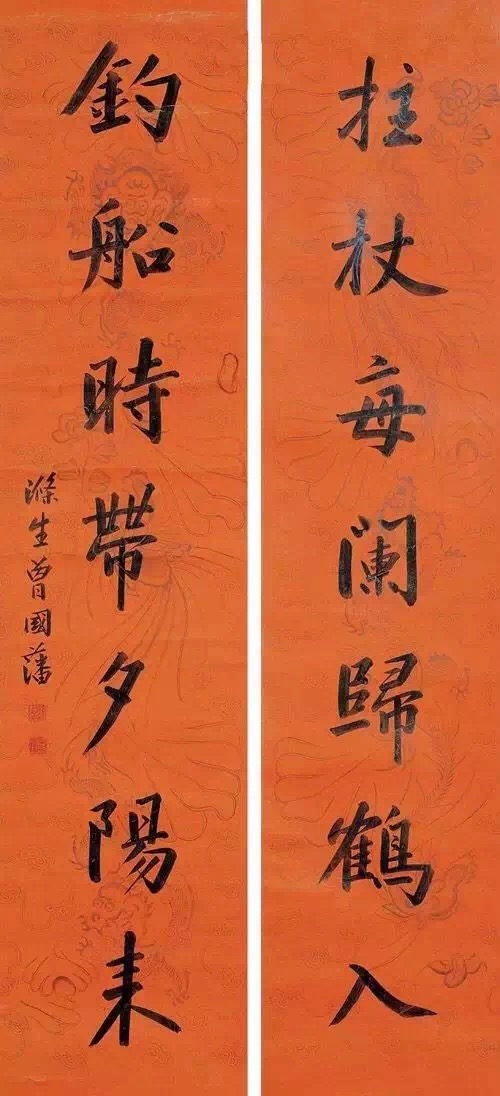 拄杖每闌歸鶴入
釣船時帶夕陽来
滌生曾國藩